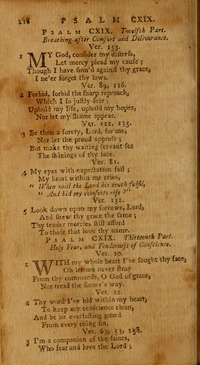 218 PSALM CXIX.
PSALM CXIX. Twelfth Part.
Breathing after Comfort and Deliverance.
Ver. 153.
1 MY God, consider my distress,
Let mercy plead my cause;
Though I have sinn'd against thy grace,
I ne'er forgot thy laws.
Ver. 39, 116.
2 Forbid, forbid the sharp reproach,
Which I so justly fear;
Uphold my life, uphold my hopes,
Nor let my shame appear.
Ver. 122, 135.
3 Be thou a surety, Lord, for me,
Nor let the proud oppress;
But make thy waiting servant see
The shinings of thy face.
Ver. 82.
4 My eyes with expectation fail;
My heart within me cries,
" When will the Lord his truth fulfil,
" And bid my comforts rise ?"
Ver. 132.
5 Look down upon my sorrows, Lord,
And shew thy grace the same;
Thy tender mercies still afford
To those that love thy name.
PSALM CXIX. Thirteenth Part.
Holy Fear, and Tenderness of Conscience.
Ver. 10.
1 WITH my whole heart I've sought thy face,
Oh let me never stray
From thy commands, O God of grace,
Nor tread the sinner's way.
Ver. 11.
2 Thy word I've hid within my heart,
To keep my conscience clean,
And be an everlasting guard
From every rising sin.
Ver. 63, 53, 158.
3 I'm a companion of the saints,
Who fear and love the Lord;